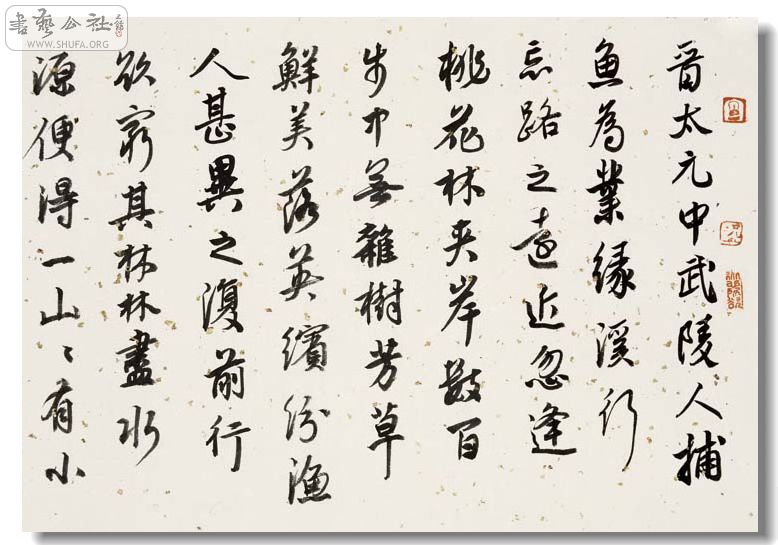 晋太元中武陵人捕
魚為業緣溪行
忘路之遠近忽逢
桃花林夾岸數百
步中無雜樹芳草
鮮美落英繽紛漁
人甚異之復前行
欲窮其林林盡水
源便得一山〻有小
書藝公社
WWW.SHUFA.ORG